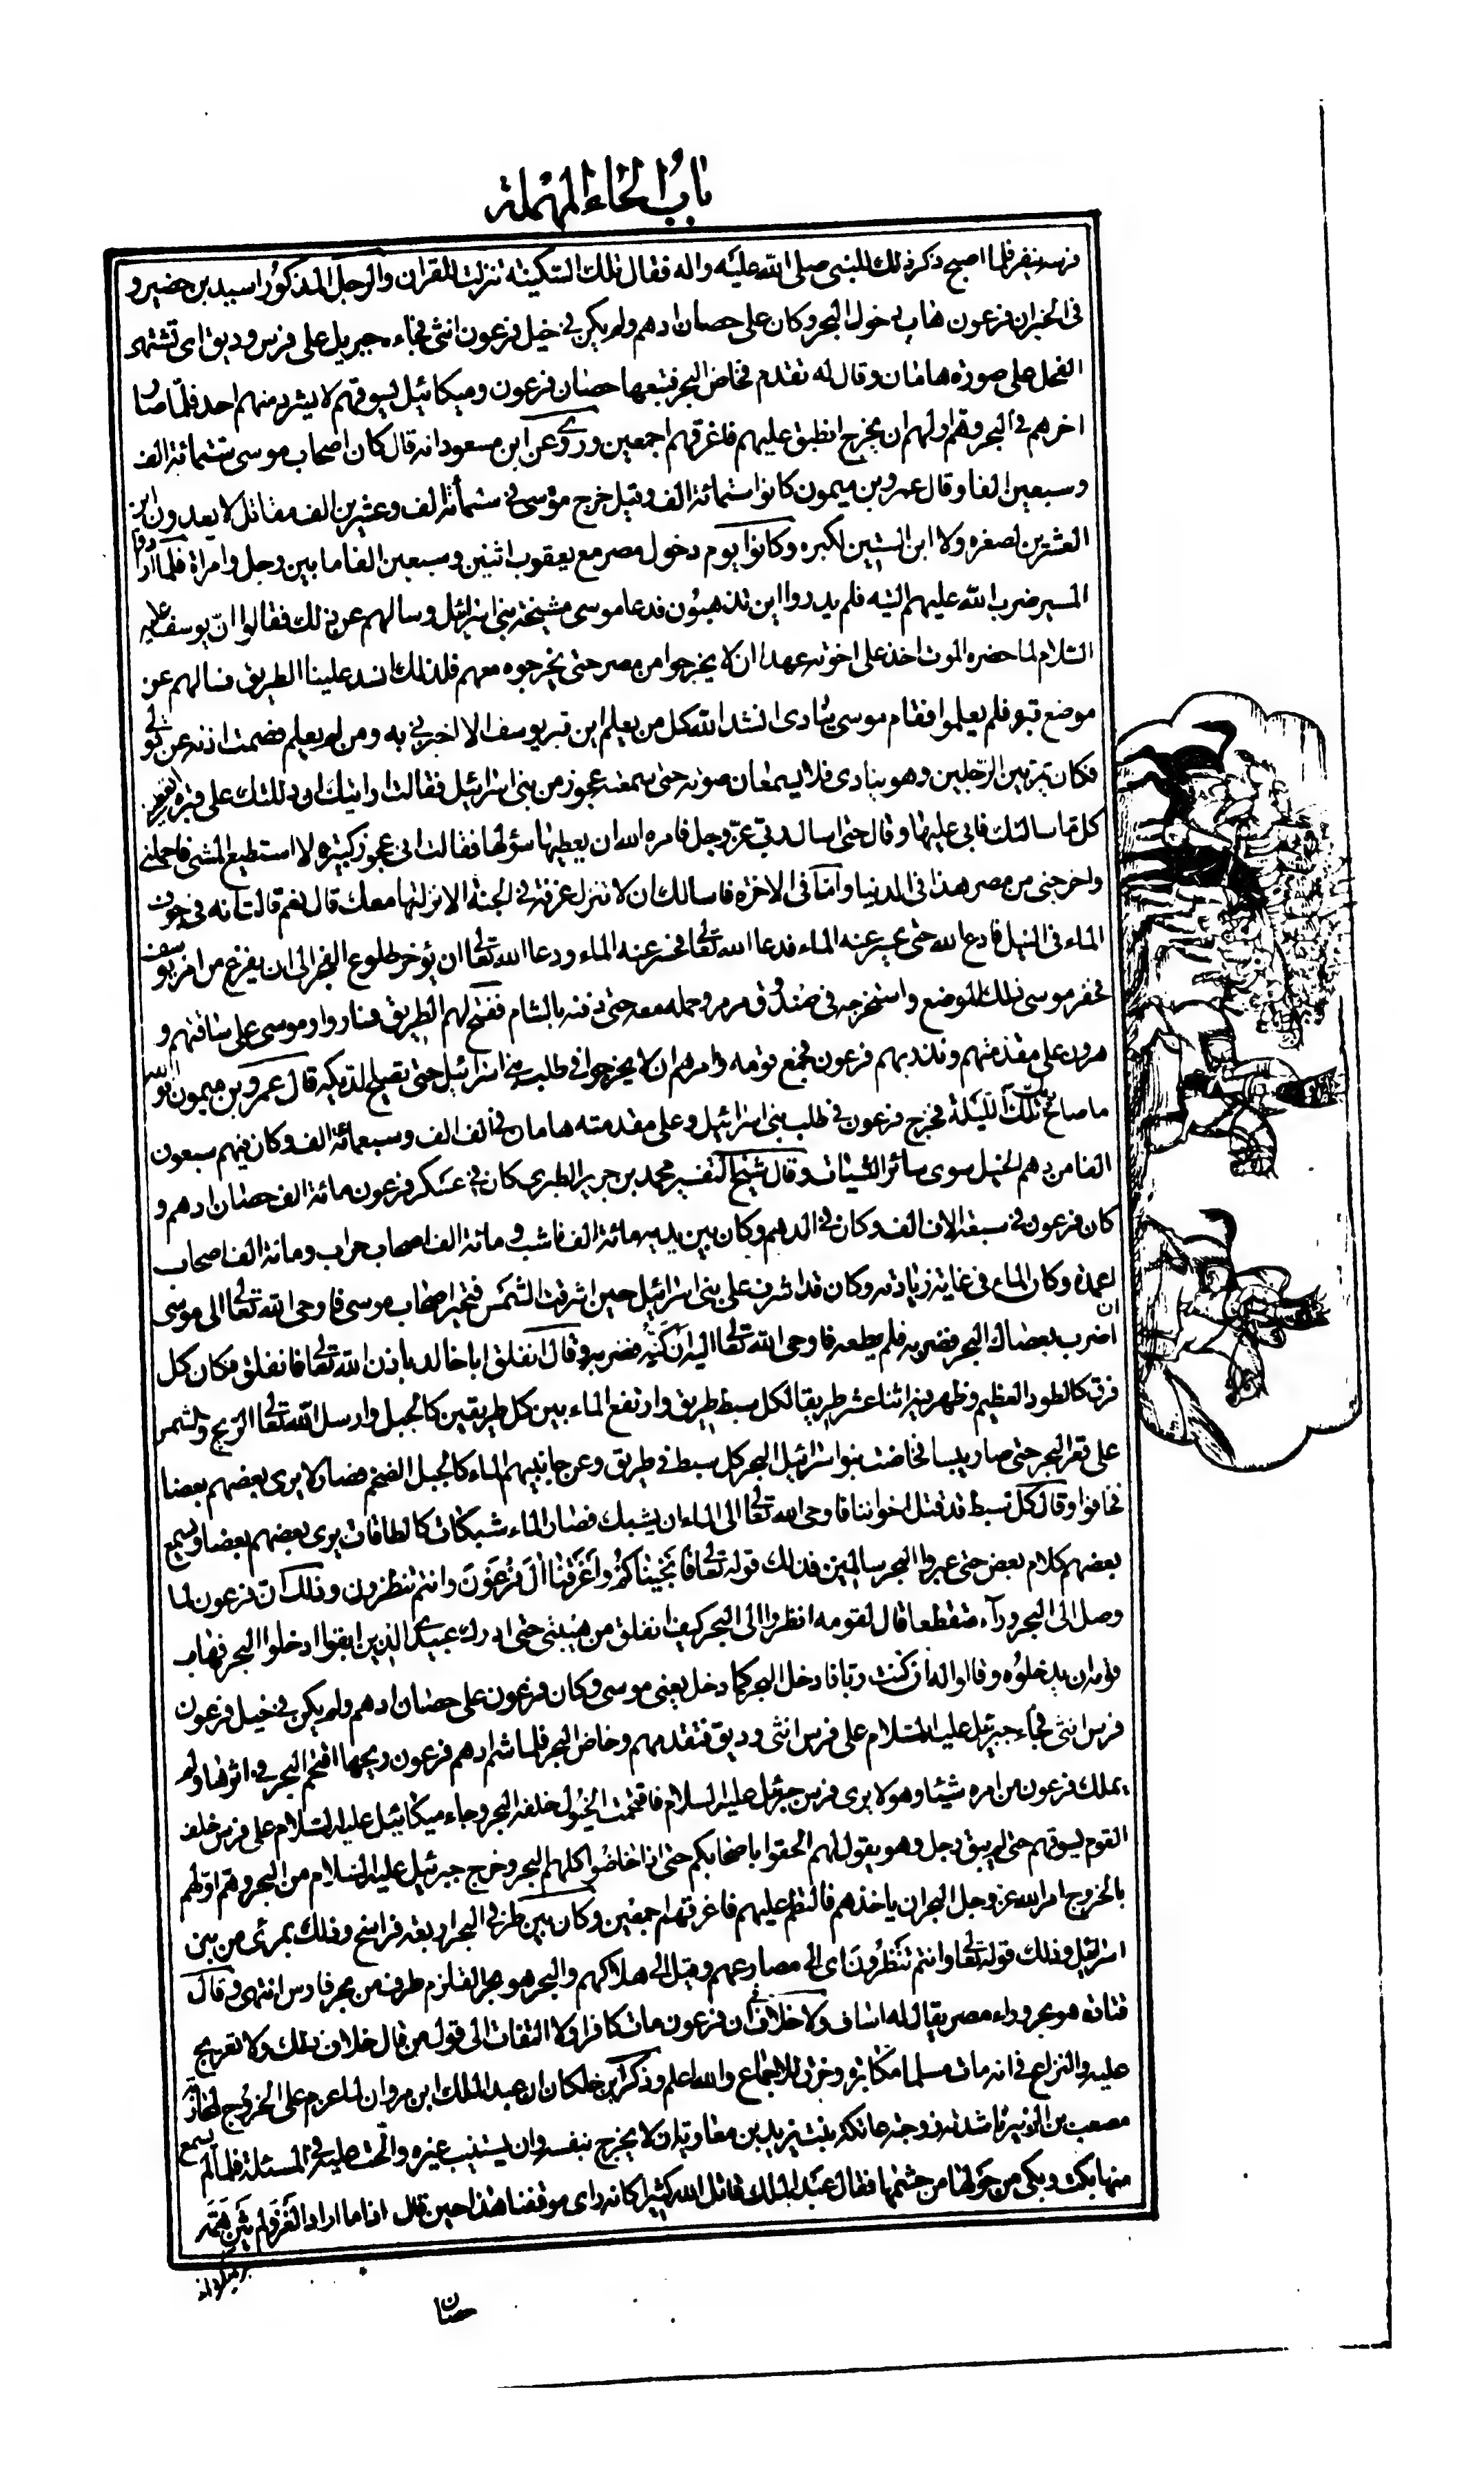 باب الحاء المهملة
فرسه ينفر فلما اصبح ذكر ذلك للنبى صلى الله عليه واله فقال تلك السكينة تنزلت للقران والرجل المذكور اسيد بن حضير و
فى الخبر ان فرعون هاب دخول البحر وكان على حصان ادهم ولم يكن فى خيل فرعون انثى فجاءه جبريل على فرس وديق اى تشتهى
الفحل على صورة هامان وقال له تقدم فخاض البحر فتبعها حصان فرعون وميكائيل يسوقهم لا يشرد منهم احد فلما صار
اخرهم فى البحر وهم اولهم ان يخرج انطبق عليهم فاغرقهم اجمعين وروى عن ابن مسعود انه قال كان اصحاب موسى ستمائة الف
وسبعين الفا وقال عمرو بن ميمون كانوا ستمائة الف وقيل خرج موسى فى ستمائة الف وعشرين الف مقاتل لا يعدون ابن
العشرين لصغره ولا ابن الستين لكبره وكانوا يوم دخول مصر مع يعقوب اثنين وسبعين الفا ما بين رجل وامراة فلما ارادوا
المسير ضرب الله عليهم التيه فلم يدروا اين تذهبون فدعا موسى مشيخة بنى اسرائيل وسالهم عن ذلك فقالوا ان يوسف عليه
السلام لما حضره الموت اخذ على اخوته عهدا ان لا يخرجوا من مصر حتى يخرجوه معهم فلذلك انسد علينا الطريق فسالهم عن
موضع قبره فلم يعلموا فقام موسى ينادى انشد الله كل من يعلم اين قبر يوسف الا اخبرنى به ومن لم يعلم فصمت اذنه عن قولى
فكان يمر بين الرجلين وهو ينادى فلا يسمعان صوته حتى سمعته عجوز من بنى اسرائيل فقالت ارايتك ان دللتك على قبره
كل ما سالتك فابى عليها وقال حتى اسال ربى عز وجل فامره الله ان يعطيها سؤلها فقالت انى عجوز كبيرة لا استطيع المشى فاحملنى
واخرجنى من مصر هذا فى الدنيا واما فى الاخرة فاسالك ان لا تنزل غرفة فى الجنة الا نزلتها معك قال نعم قالت انه فى جوف
الماء فى النيل فادع الله حتى يحسر عنه الماء فدعا الله تعالى فحسر عنه الماء ودعا الله تعالى ان يؤخر طلوع الفجر الى ان يفرغ من امر يوسف
فحفر موسى ذلك الموضع واستخرجه فى صندوق مرمر وحمله معه حتى دفنه بالشام ففتح لهم الطريق فساروا وموسى على ساقتهم و
هرون على مقدمتهم ونذر بهم فرعون فجمع قومه وامرهم ان لا يخرجوا فى طلب بنى اسرائيل حتى يصيح الديكة قال عمرو بن ميمون فوالله
ما صاح ديك تلك الليلة فخرج فرعون فى طلب بنى اسرائيل وعلى مقدمته هامان فى الف الف وسبعمائة الف وكان فيهم سبعون
الفا من دهم الخيل سوى سائر الشيات وقال شيخ التفسير محمد بن جرير الطبرى كان فى عسكر فرعون مائة الف حصان ادهم و
كان فرعون فى سبعة الاف الف وكان فى الدهم وكان بين يديه مائة الف ناشب ومائة الف اصحاب حراب ومائة الف اصحاب
اعمدة وكان الماء فى غاية زيادته وكان قد اشرف على بنى اسرائيل حين اشرقت الشمس فتحير اصحاب موسى فاوحى الله تعالى الى موسى ان
اضرب بعصاك البحر فضربه فلم يطعه فاوحى الله تعالى اليه ان كنه فضربه وقال انفلق ابا خالد باذن الله تعالى فانفلق فكان كل
فرق كالطود العظيم وظهر فيه اثنا عشر طريقا لكل سبط طريق وارتفع الماء بين كل طريقين كالجبل وارسل الله تعالى الريح والشمس
على قعر البحر حتى صار يبسا فخاضت بنو اسرائيل البحر كل سبط فى طريق وعن جانبيهم الماء كالجبل الضخم فصار لا يرى بعضهم بعضا
فخافوا وقال كل سبط قد قتل اخواننا فاوحى الله تعالى الى الماء ان يشبك فصار الماء شبكات كالطاقات يرى بعضهم بعضا ويسمع
بعضهم كلام بعض حتى عبروا البحر سالمين فذلك قوله تعالى فانجيناكم واغرقنا ال فرعون وانتم تنظرون وذلك ان فرعون لما
وصل الى البحر ورآه منقطعا قال لقومه انظروا الى البحر كيف انفلق من هيبتى حتى ادرك عبيدى الذين ابقوا ادخلوا البحر فهاب
قومه ان يدخلوه وقالوا له ان كنت ربا فادخل البحر كما دخل يعنى موسى وكان فرعون على حصان ادهم ولم يكن فى خيل فرعون
فرس انثى فجاء جبرئيل عليه السلام على فرس انثى وديق فتقدمهم وخاض البحر فلما شم ادهم فرعون ريحها اقتحم البحر فى اثرها ولم
يملك فرعون من امره شيئا وهو لا يرى فرس جبرئيل عليه السلام فاقتحمت الخيول خلفه البحر وجاء ميكائيل عليه السلام على فرس خلف
القوم يسوقهم حتى لم يبق رجل وهو يقول لهم الحقوا باصحابكم حتى اذا خاضوا كلهم البحر وخرج جبرئيل عليه السلام من البحر وهم اولهم
بالخروج امر الله عز وجل البحر ان ياخذهم فالتطم عليهم فاغرقهم اجمعين وكان بين طرفى البحر اربعة فراسخ وذلك بمرئ من بنى
اسرائيل وذلك قوله تعالى وانتم تنظرون اى الى مصارعهم وقيل الى هلاكهم والبحر هو بحر القلزم طرف من بحر فارس انتهى وقال
قتادة هو بحر وراء مصر يقال له اساف ولا خلاف فى ان فرعون مات كافرا ولا التفات الى قول من قال خلاف ذلك ولا تعريج
عليه والنزاع فى انه مات مسلما مكابرة وخرق للاجماع والله اعلم وذكر ابن خلكان ان عبد الملك ابن مروان لما عزم على الخروج لمحاربة
مصعب بن الزبير ناشدته زوجته عاتكة بنت يزيد بن معاوية ان لا يخرج بنفسه وان يستنيب غيره والحت عليه فى المسئلة فلما لم يسمع
منها بكت وبكى من حولها من حشمها فقال عبد الملك قاتل الله كثيرا كانه راى موقفنا هذا حين قال اذا ما اراد الغزو لم يثن همه
حصان